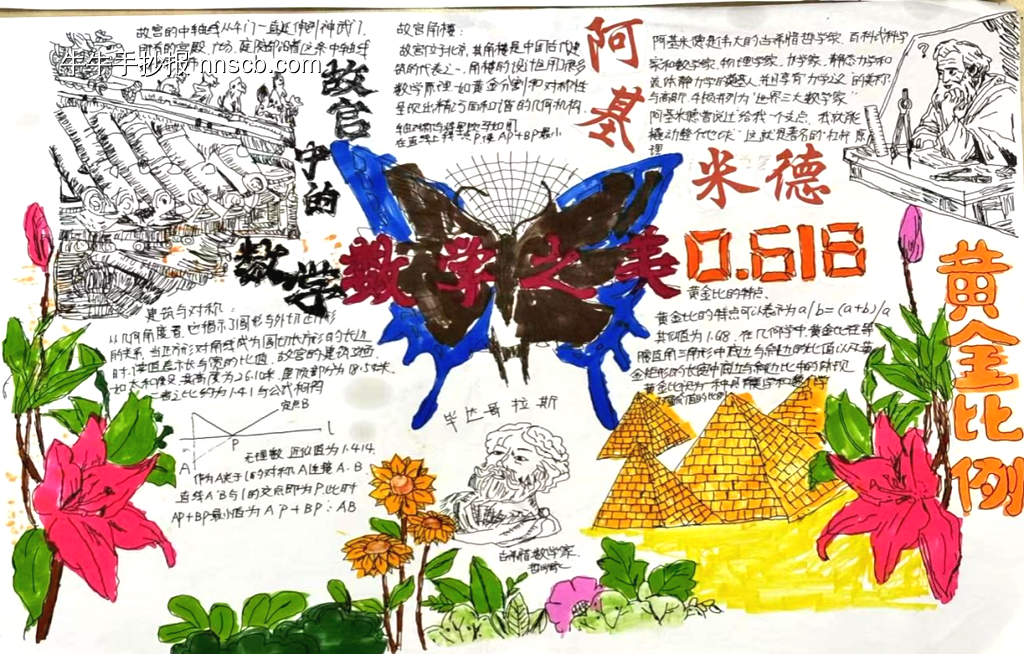 故宫的中轴线从午门一直延伸到神武门,
所有的宫殿、广场、庭院都沿着这条中轴线
牛牛手抄报 nnscb.com
故宫
中的
数学
故宫角楼:
故宫位于北京,其角楼是中国古代建
筑的代表之一,角楼的设计运用了很多
数学原理,如黄金分割和对称性
呈现出精巧而和谐的几何机构。
在直线上找一点P,使AP+BP最小
阿基
米德
阿基米德是伟大的古希腊哲学家、百科式科学
家和数学家、物理学家、力学家、静态力学和
流体静力学的奠基人,并且享有"力学之父"的美称,
与高斯、牛顿并列为"世界三大数学家"
阿基米德曾说过"给我一个支点,我就能
撬动整个地球"这就是著名的"杠杆原
理
数学之美
0.618
黄金比例
黄金比的特点。
黄金比的特点可以表示为a/b=(a+b)/a
其比值为1.68。在几何学中,黄金比在等
腰直角三角形中
黄金比视为一种具有美学和数学
价值的比例
建筑与对称:
从几何角度看,它揭示了圆形与外切正方形
的关系,当正方形对角线成为圆切长方形的长边
时,该图是长与宽的比值。故宫的建筑中
如太和殿,其高度为26.10米,屋顶部分为18.5米
二者之比约为1.41与公式相符
定点B
A
P
l
无理数,近似值为1.414.
作为A关于l的对称A连接A·B.
直线A'B与l的交点即为P,此时
AP+BP最小值为A'P+BP:AB
毕达哥拉斯
古希腊数学家、
哲学家